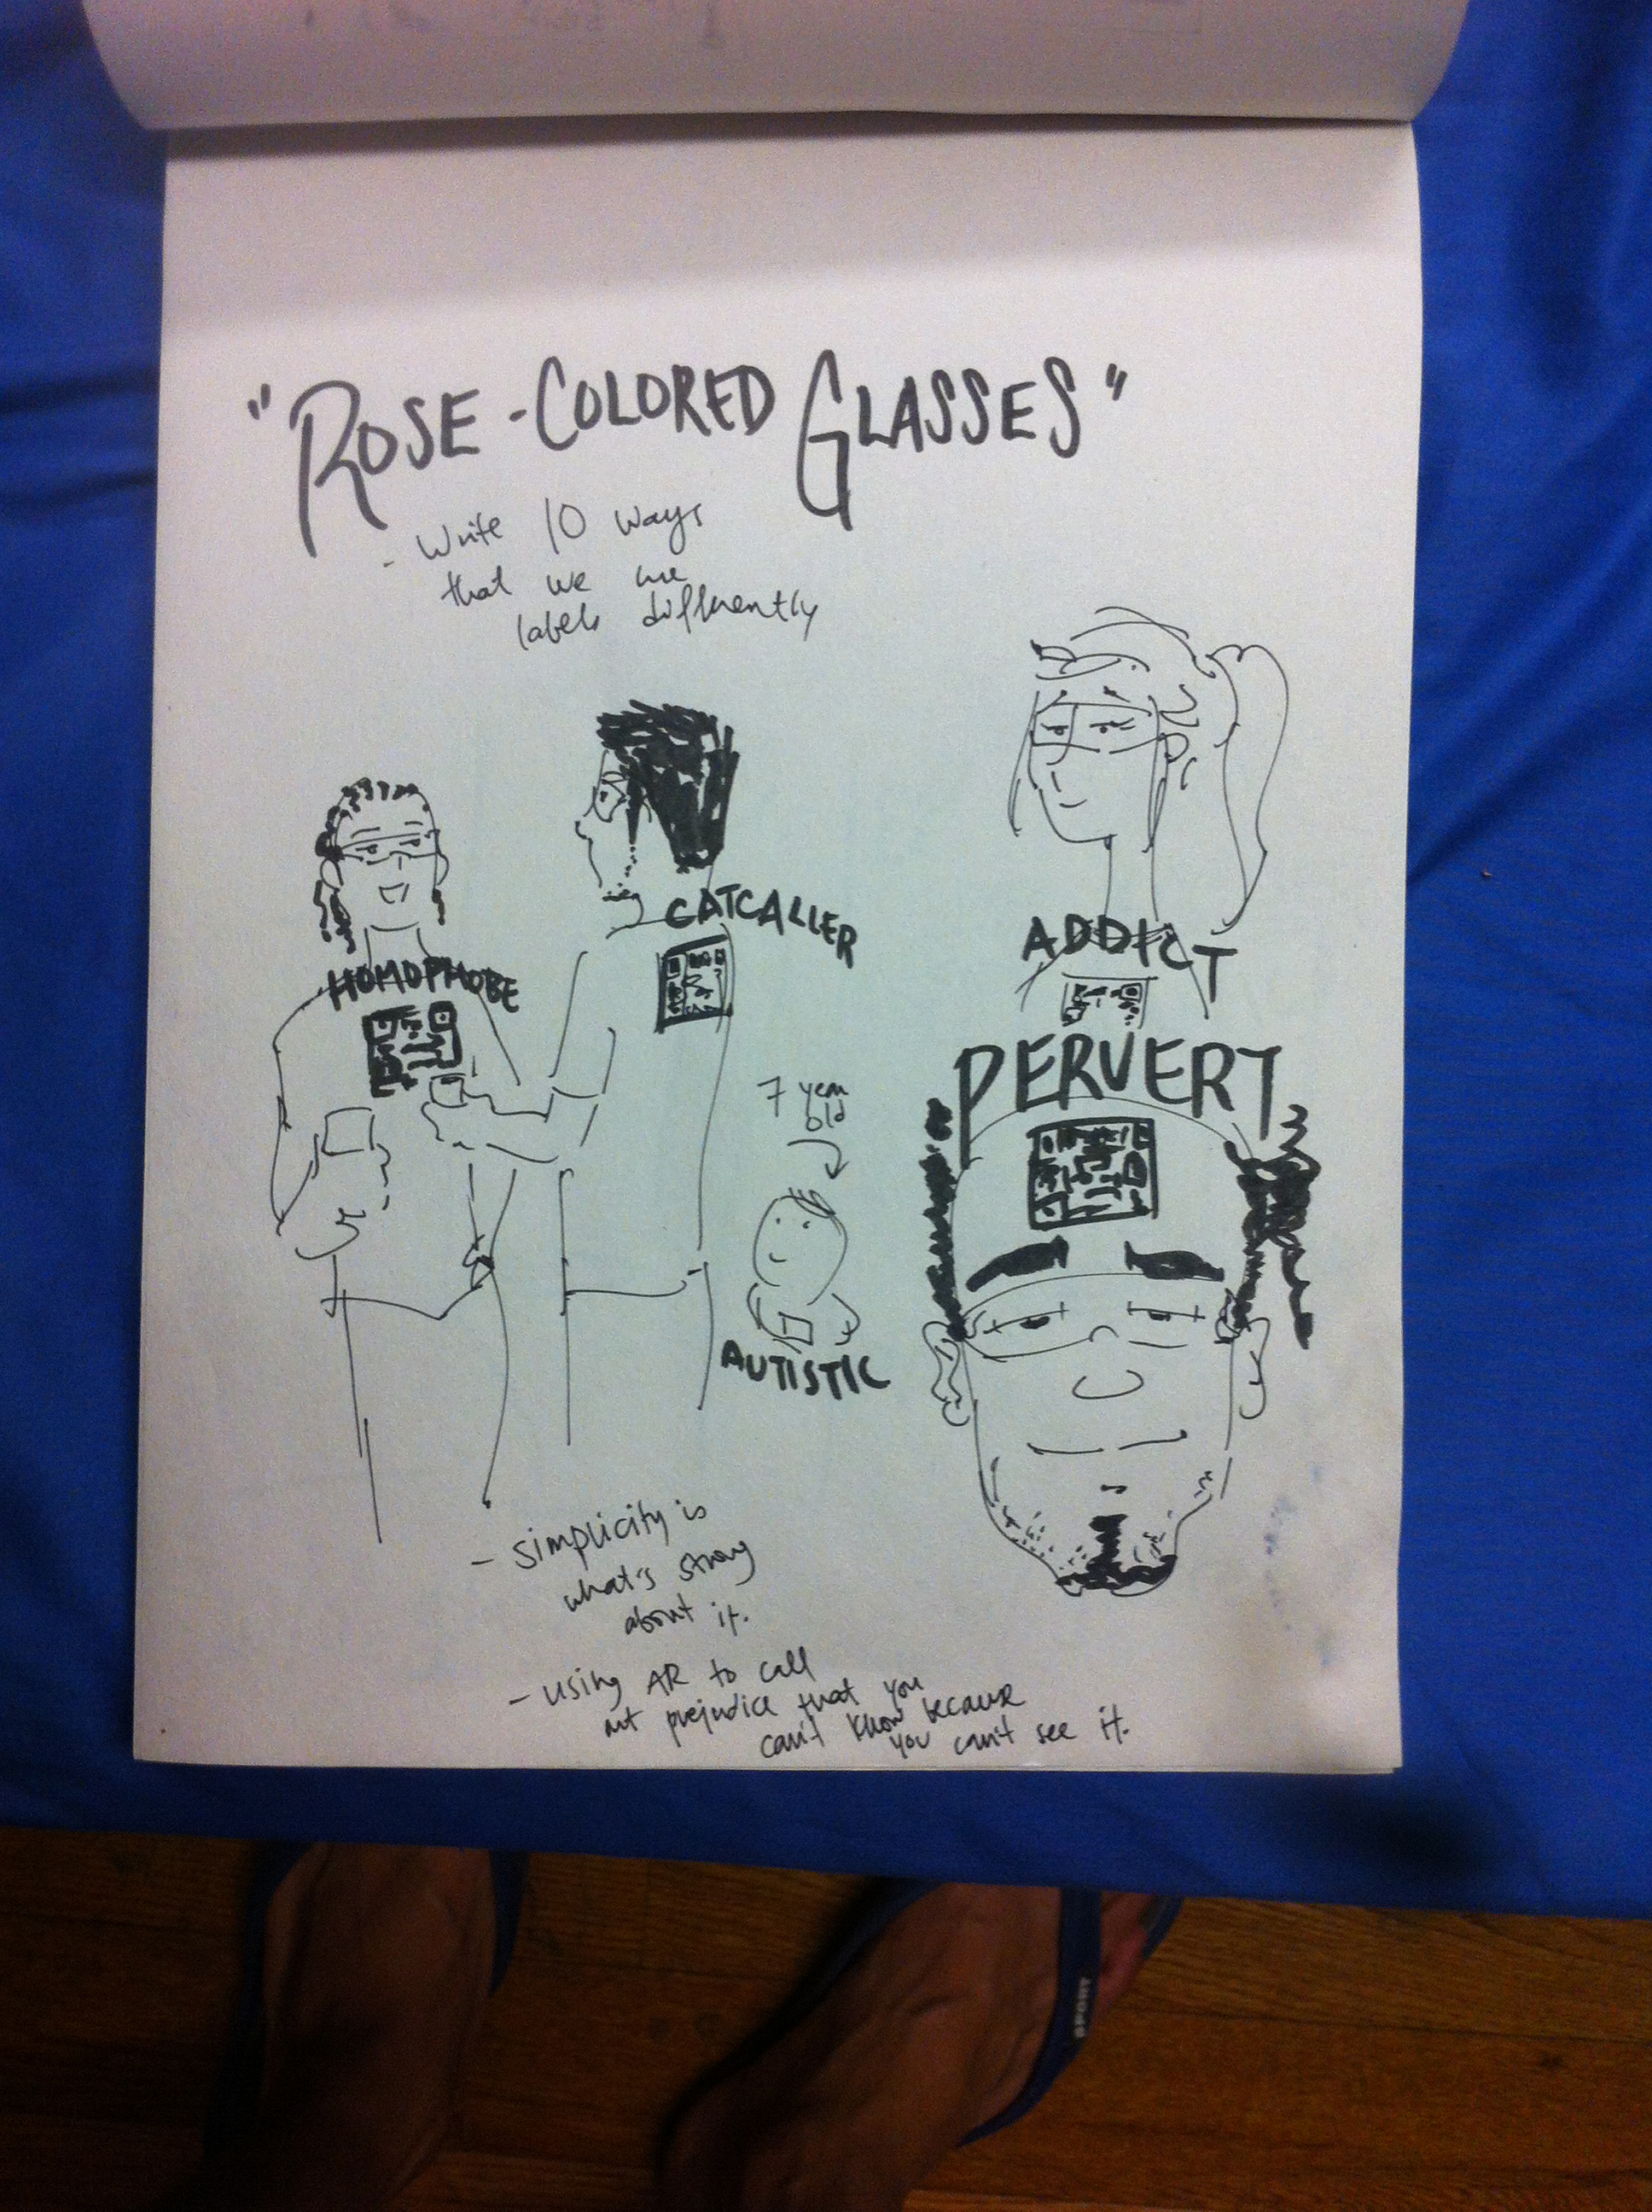 "ROSE-COLORED GLASSES"
- Write 10 ways
that we use
labels differently
HOMOPHOBE
CATCALLER
ADDICT
PERVERT
7 year
old
AUTISTIC
- simplicity is
what's strong
about it.
- using AR to call
out prejudice that you
can't know because
you can't see it.
SPORT